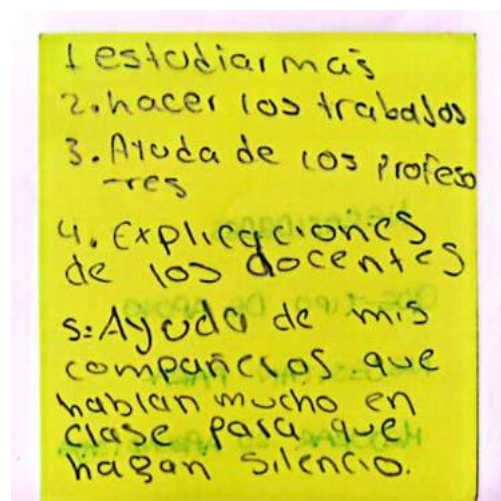 1 estudiar más
2. hacer los trabajos
3. Ayuda de los profeso
-res
4. Explicaciones
de los docentes
5: Ayuda de mis
compañeros que
hablan mucho en
clase para que
hagan silencio.